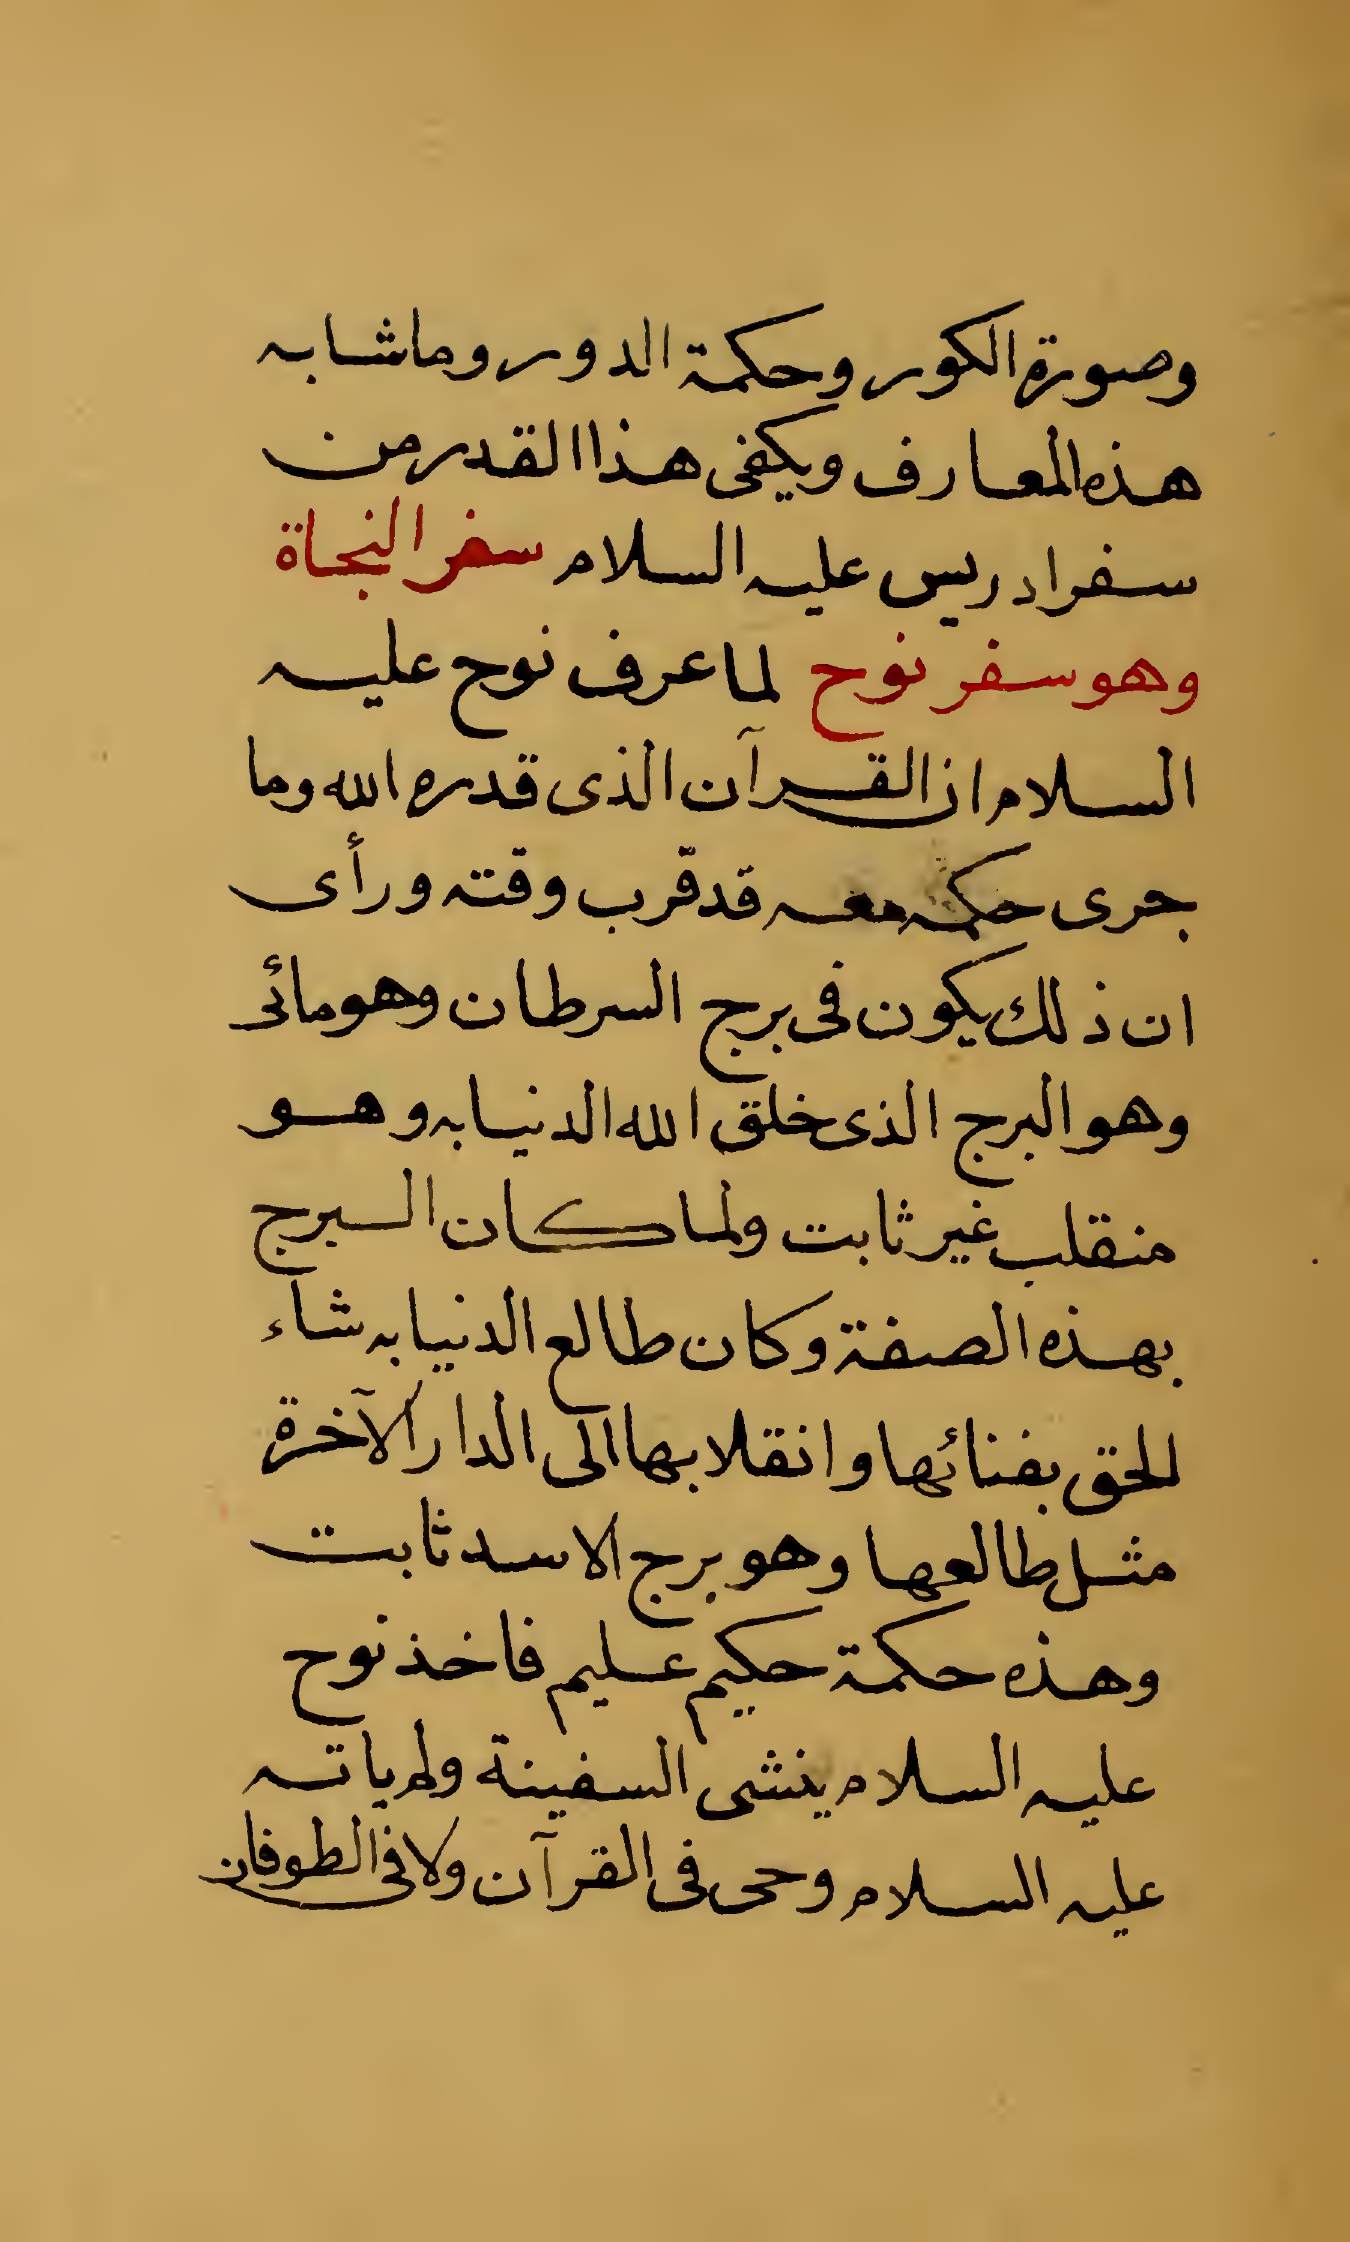 وصورة الكور وحكمة الدور وما شابه
هذه المعارف ويكفى هذا القدر من
سفر ادريس عليه السلام سفر النجاة
وهو سفر نوح لما عرف نوح عليه
السلام ان القرآن الذى قدره الله وما
جرى حكمه معه قد قرب وقته ورأى
ان ذلك يكون فى برج السرطان وهو مائى
وهو البرج الذى خلق الله الدنيا به وهو
منقلب غير ثابت ولما كان البرج
بهذه الصفة وكان طالع الدنيا به شاء
الحق بفنائها وانقلابها الى الدار الآخرة
مثل طالعها وهو برج الاسد ثابت
وهذه حكمة حكيم عليم فاخذ نوح
عليه السلام ينشى السفينة ولم ياته
عليه السلام وحى فى القرآن ولا فى الطوفان